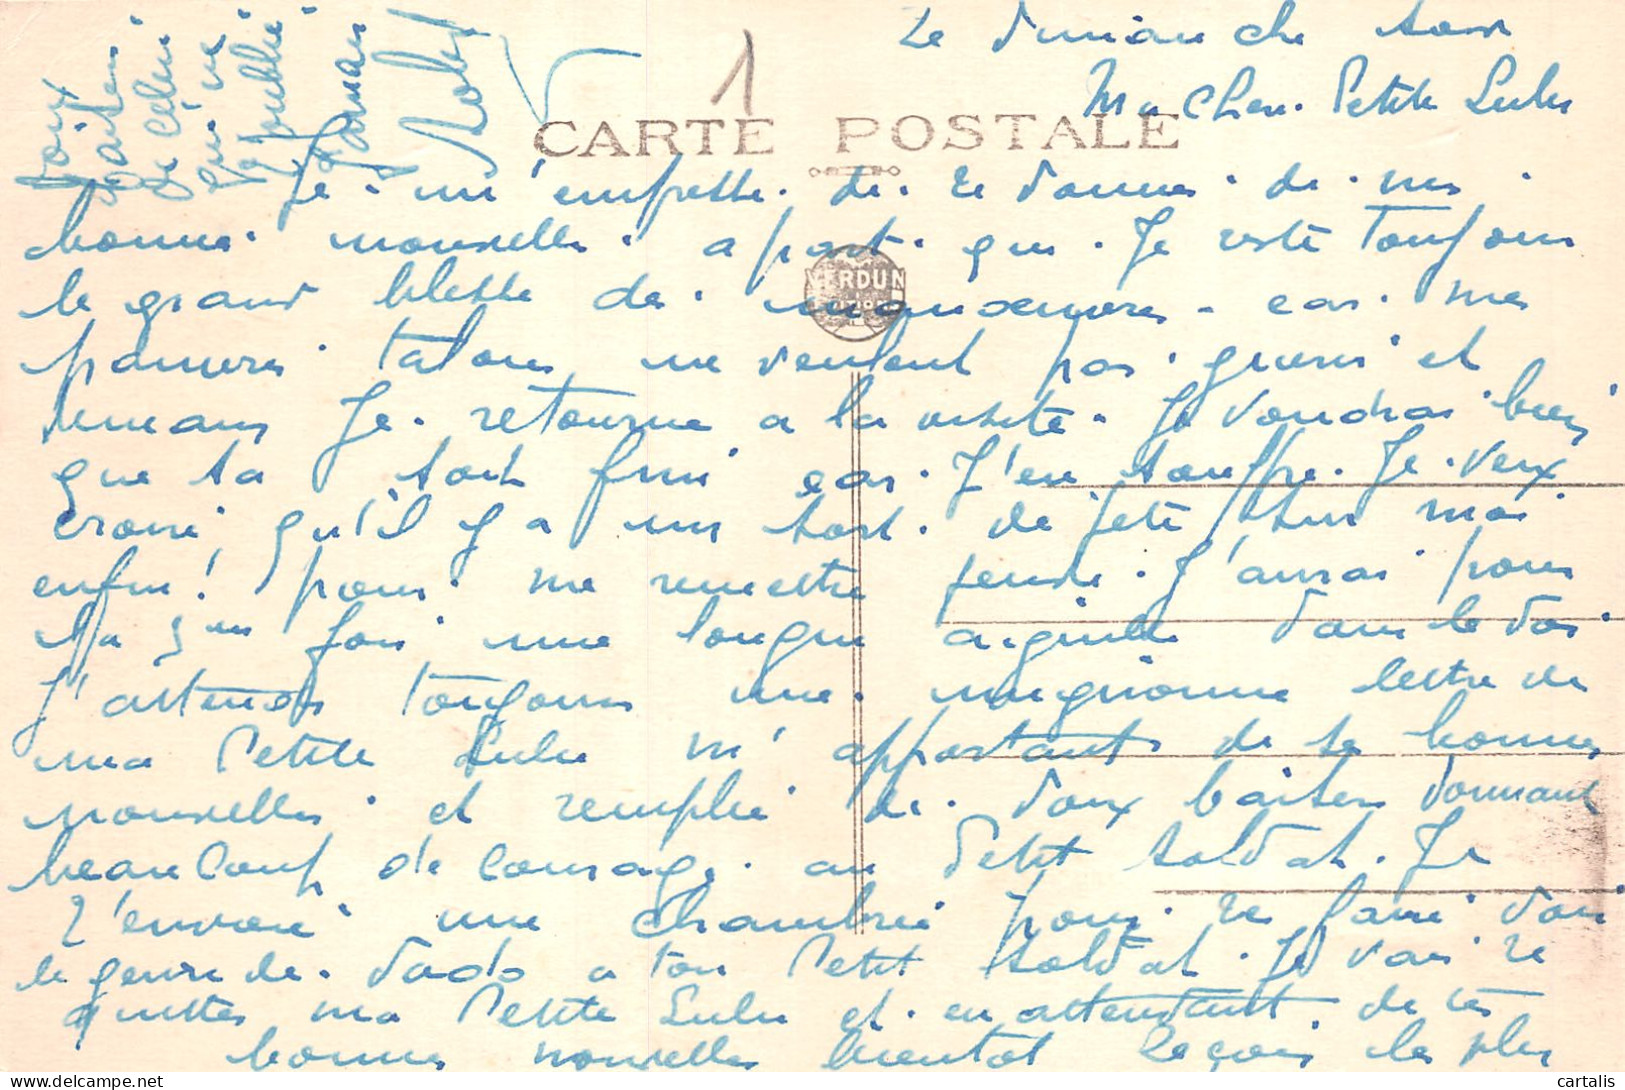 Le Dimanche soir
Ma Cher. Petite Lulu
1
CARTE POSTALE
Je. m'empresse. de. te donner. de. mes
bonne. nouvelles. apart. que. Je reste Toujours
le grand blesse de. manoeuvres - car. mes
pauvres talons ne veulent pas. guerir et
demain Je. retourne a la visite. Je Voudrai bien
que sa soit fini car. J'en souffre. Je. Veux
croire qu'il y a un sort. de jeté sur moi
enfin! pour. me remettre J'aurai pour
la 3me fois une longue aiguille dans le dos.
J'attends toujours une. mignonne lettre de
ma Petite Lulu m'apportant de se bonnes
nouvelles et remplie de. Doux baisers donnant
beaucoup de courage. au Petit soldat. Je
t'envoie une chambrée pour. te faire voir
le genre de. dodo a ton Petit soldat. Je vais te
quitter ma Petite Lulu et. en attendant. de tes
bonnes nouvelles bientot Reçois les plus
Doux
Baisers
De celui
qui ne
t'oublie
Jamais
VERDUN
cartalis
delcampe.net